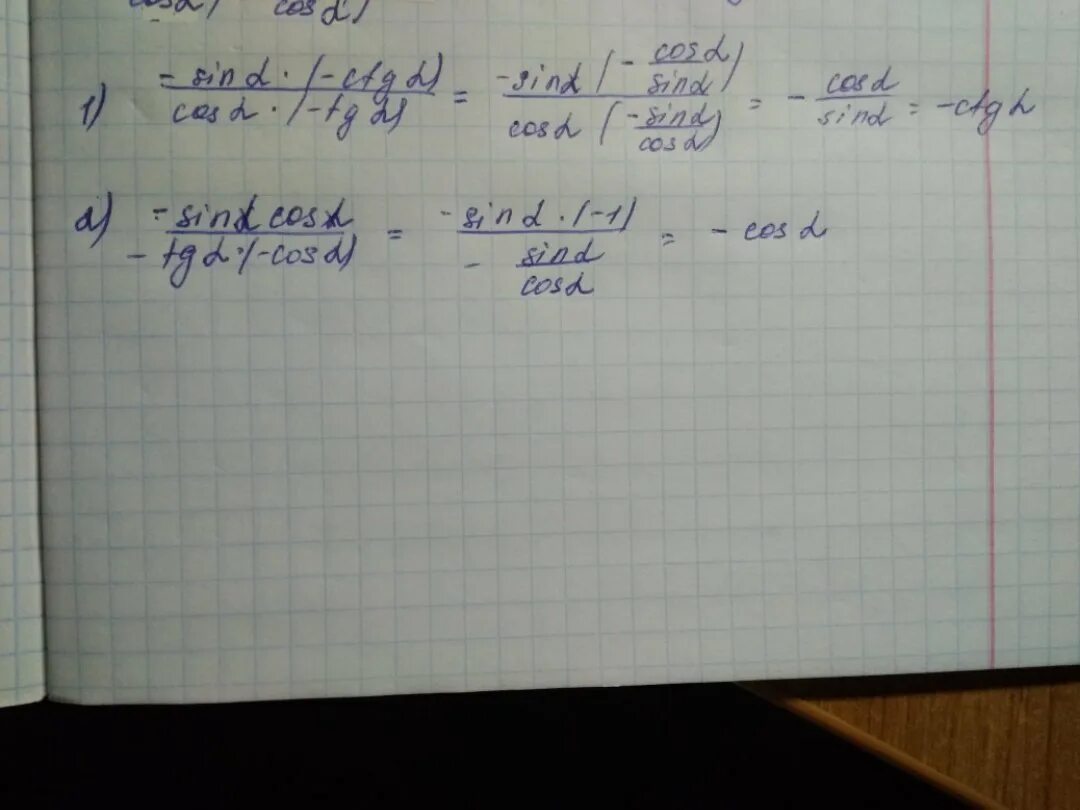 cosα) cosα)
1) -sinα·(-ctgα) / cosα·(-tgα) = -sinα(-cosα/sinα) / cosα(-sinα/cosα) = - cosα/sinα = -ctgα
2) -sinα cosα / -tgα·(-cosα) = -sinα·(-1) / - sinα/cosα = - cosα